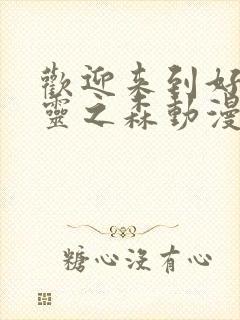 歡迎來到好
靈之森動漫
糖心沒有心